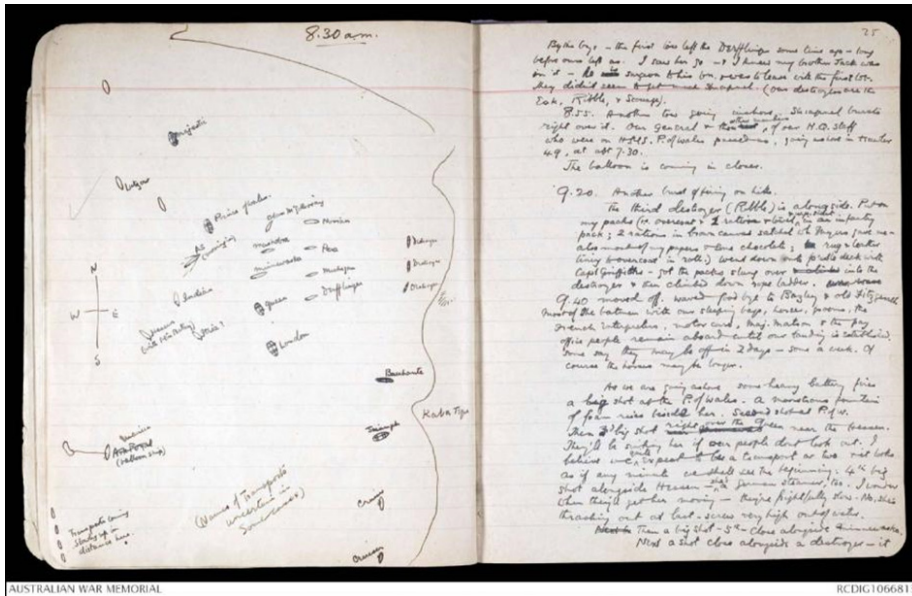 8.30 a.m.
Majestic
Lutzow
Prince of Wales
Minnewaska
Novian
Pera
Michigan
Derfflinger
Queen
London
Indian
N
W
E
S
Bacchante
Kaba Tepe
Triumph
(balloon ship)
(Names of Transports
uncertain in
some cases)
Transports coming
slowly up in
distance here.
25
By the bye – the first tow left the Derfflinger some time ago – long
before ours left us. I saw her go – & I knew my brother Jack was
on it – surgeon to his bn, & was to leave with the first lot.
They didn't seem to get much shrapnel. (Our destroyers are the
Esk, Ribble, & Scourge).
8.55. Another tow going inshore. Shrapnel bursts
right over it. Our General & of our H.Q. Staff
who were on HMS. P. of Wales going ashore in
at abt 7.30.
The balloon is coming in closer.
9.20. Another burst of firing on hills.
The third destroyer (Ribble) is alongside. Put on
my packs ( overcoat & 2 rations in an infantry
pack; 2 rations in brown canvas satchel
also most of my papers & some chocolate; rug & leather
in roll.) went down onto deck with
Capt Griffiths – got the packs slung over into the
destroyer & then climbed down rope ladder.
9.40 moved off. Waved good bye to Bazley & old Fitzgerald
Most of the batmen with our sleeping bags, horses, grooms, the
French interpreters, motor cars, Maj. & the pay
office people remain aboard until our landing is established.
Some say they may be off in 2 days – some a week. Of
course the horses may be longer.
As we are going ashore some heavy battery fires
a big shot at the P. of Wales. A monstrous fountain
of foam rises beside her. Second shot at P. of W.
Then 3rd big shot right over the Queen near the
They'll be sinking her if our people dont look out. I
believe we expect to lose a transport or two. It looks
as if any minute we shall see the beginning. 4th big
shot alongside German steamer, this. I wonder
when they'll get her moving – they're frightfully slow. No, she's
thrashing out at last – screw very high out of water.
Then a big shot – 5th – close alongside Minnewaska.
Next a shot close alongside a destroyer – it
AUSTRALIAN WAR MEMORIAL
RCDIG106681